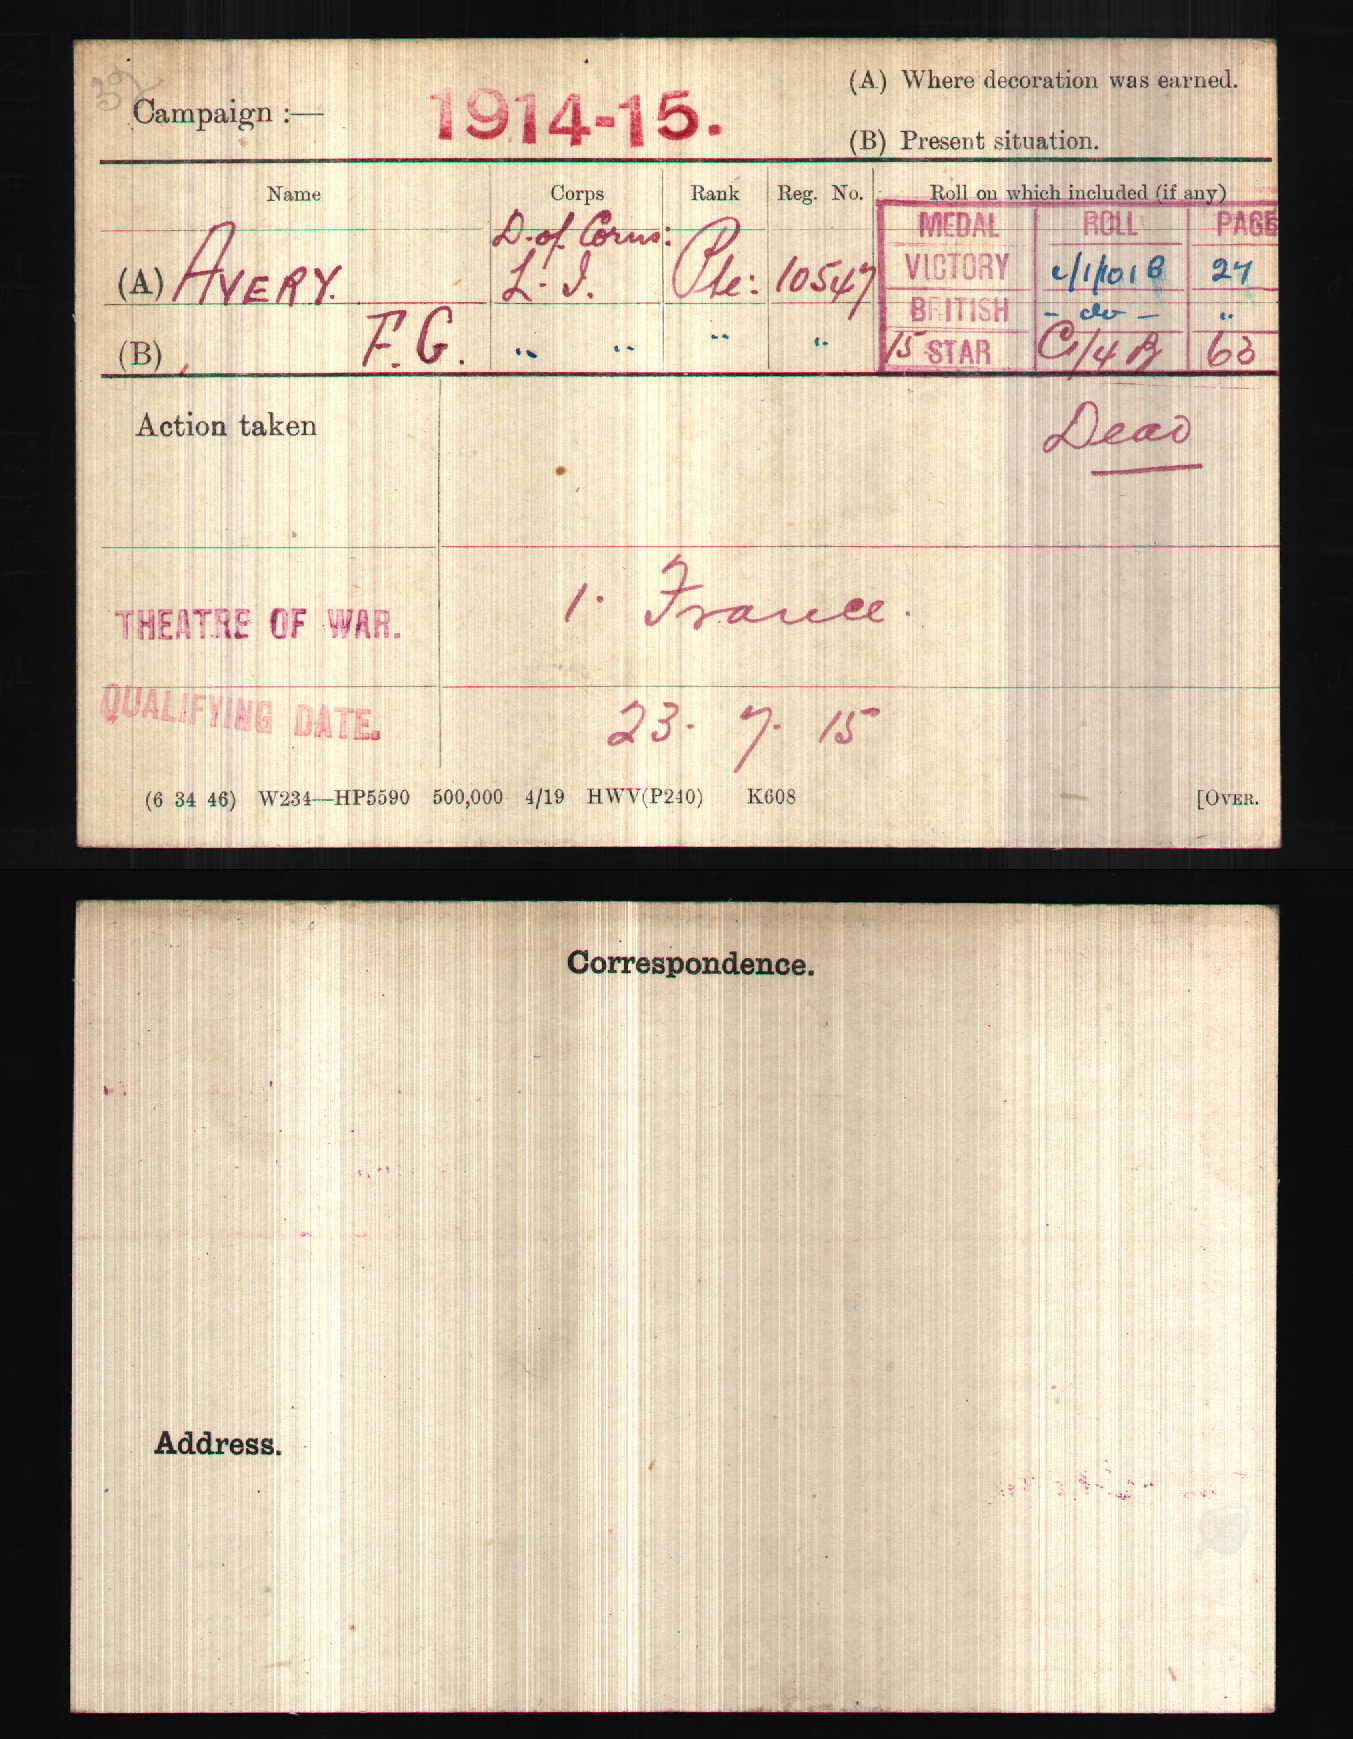 39
Campaign :— 1914-15. (A) Where decoration was earned.
(B) Present situation.
Name Corps Rank Reg. No. Roll on which included (if any)
MEDAL ROLL PAGE
(A) AVERY. D. of Corn: L. I. Pte: 10547 VICTORY C/1/101 B 27
BRITISH - do - "
(B) F. G. " " " " 15 STAR C/1/4 B 63
Action taken Dead
THEATRE OF WAR. 1. France.
QUALIFYING DATE. 23. 7. 15
(6 34 46) W234—HP5590 500,000 4/19 HWV(P240) K608 [OVER.
Correspondence.
Address.